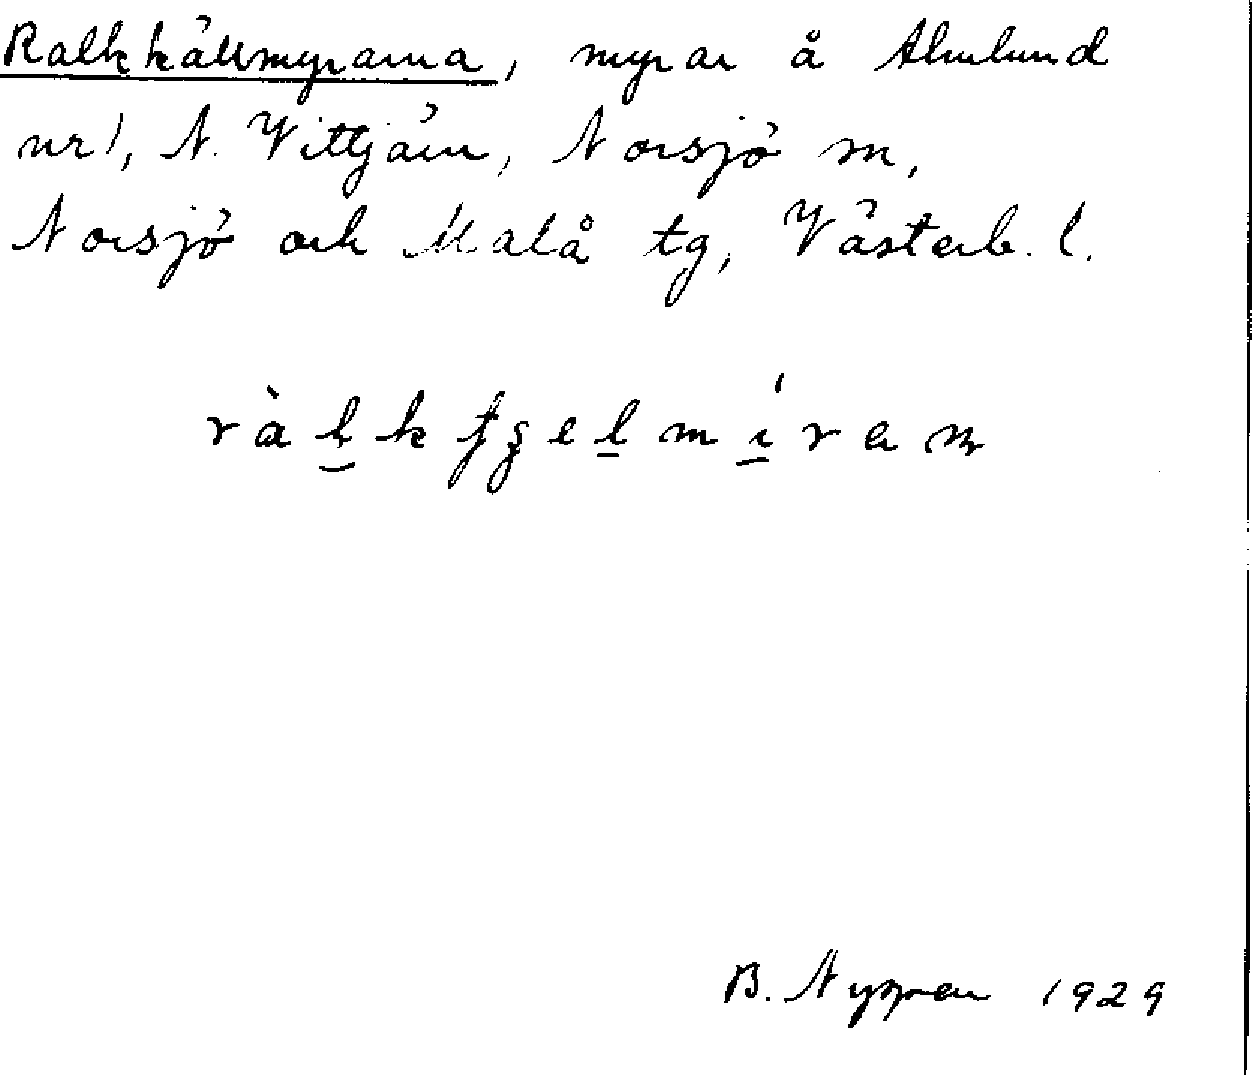 Ralkkällmyrarna, myrar å Almlund
nr 1, N. Vittjärn, Norsjö sn,
Norsjö och Malå tg, Västerb. l.
B. Nygren 1929